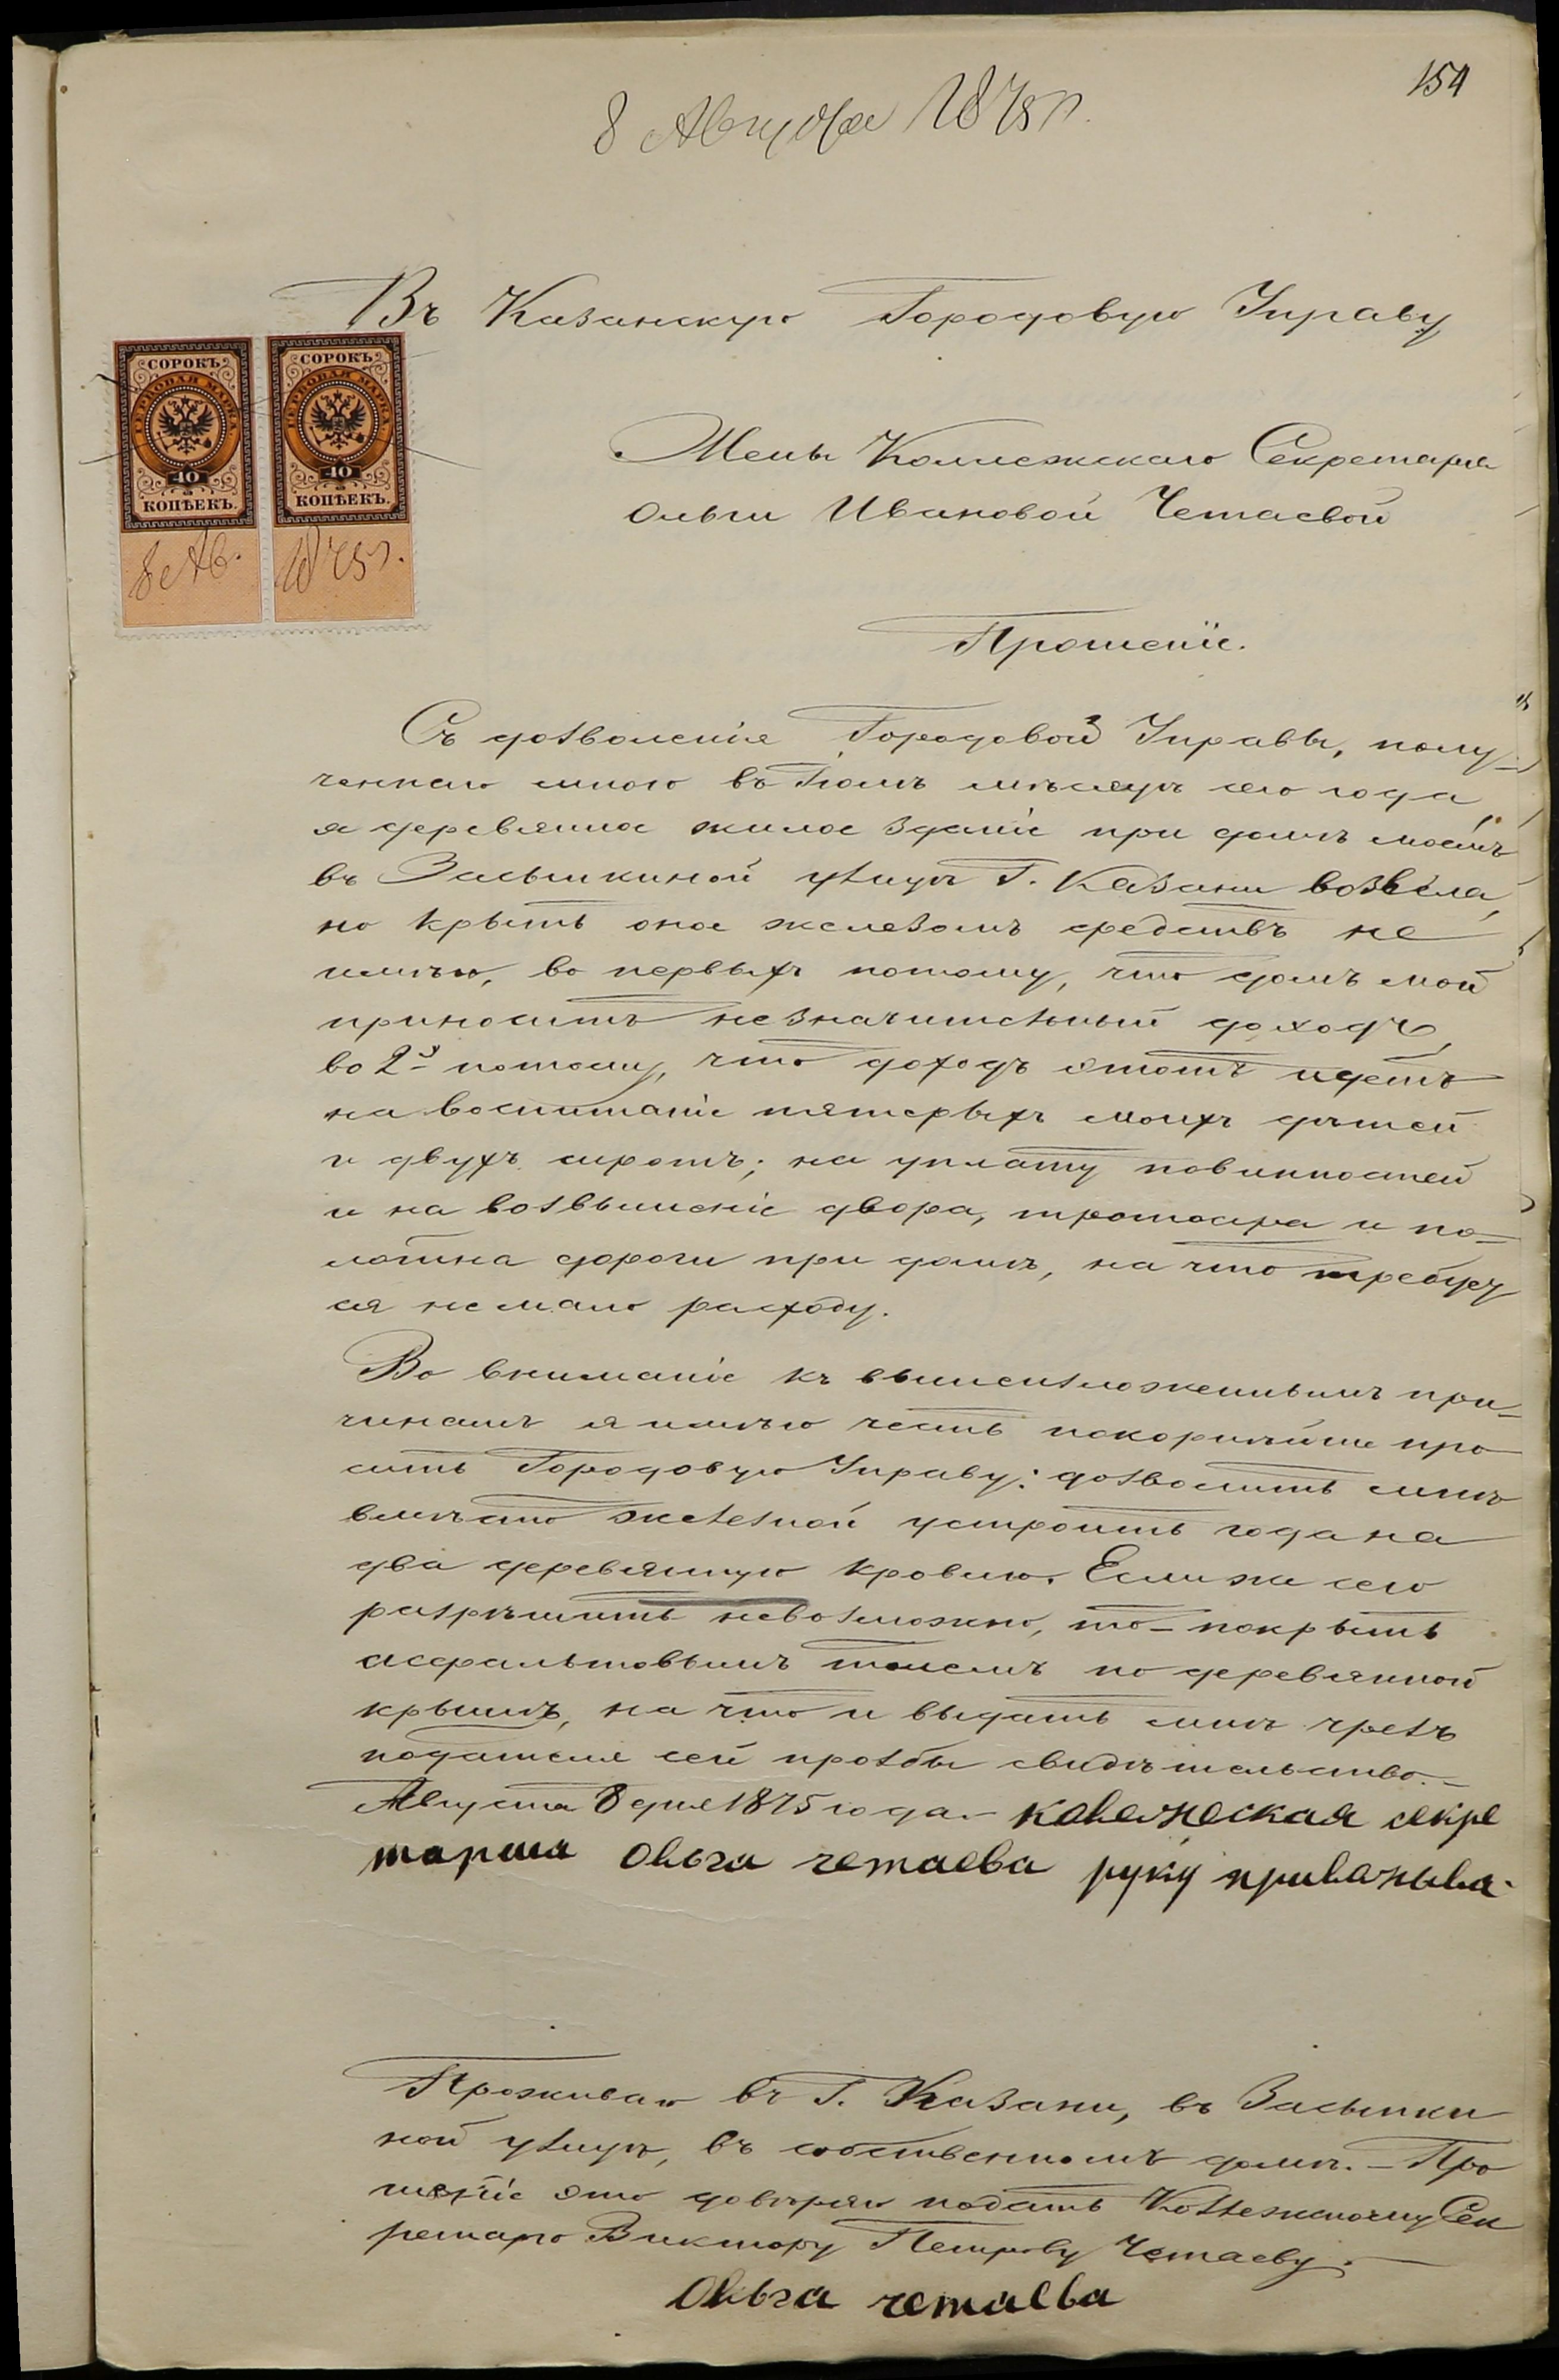 154
8 Августа 1875 г.
Въ Казанскую Городовую Управу
СОРОКЪ
ГЕРБОВАЯ МАРКА
40
КОПѢЕКЪ.
8 Ав.
СОРОКЪ
ГЕРБОВАЯ МАРКА
40
КОПѢЕКЪ.
1875 г.
Жены Коллежскаго Секретаря
Ольги Ивановой Четаевой
Прошеніе.
Съ дозволенія Городовой Управы, полу-
ченнаго мною въ Іюлѣ мѣсяцѣ сего года,
я деревянное жилое зданіе при домѣ моемъ
въ Засыпкиной улицѣ Г. Казани возвела,
но крыть оное железомъ средствъ не
имѣю, во первыхъ потому, что домъ мой
приноситъ незначительный доходъ,
во 2х потому, что доходъ этотъ идетъ
на воспитаніе пятерыхъ моихъ дѣтей
и двухъ сиротъ; на уплату повинностей
и на возвышеніе двора, тротоара и по-
лотна дороги при домѣ, на что требует
ся не мало расходу.
Во вниманіе къ вышеизложеннымъ при-
чинамъ я имѣю честь покорнѣйше про
сить Городовую Управу: дозволить мнѣ
вмѣсто железной устроить года на
два деревянную кровлю. Если же сего
разрѣшить невозможно, то - покрыть
асфальтовымъ толемъ по деревянной
крышѣ, на что и выдать мнѣ чрезъ
подателя сей прозбы свидѣтельство.-
Августа 8 дня 1875 года.- колежская секре
тарша Ольга четаева руку приложила.
Проживаю въ Г. Казани, въ Засыпки
ной улицѣ, въ собственномъ домѣ. - Про
шеніе это довѣряю подать Коллежскому Сек
ретарю Виктору Петрову Четаеву.
Ольга четаева